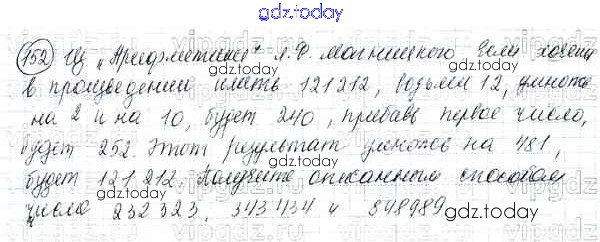 gdz.today
152 Из "Арифметики" Л.Ф. Магницкого. Если хочешь
gdz.today
в произведении иметь 121212, возьми 12, умножь
gdz.today
на 2 и на 10, будет 240, прибавь первое число,
gdz.today
будет 252. Этот результат умножь на 481,
gdz.today
будет 121 212. Получите описанным способом
gdz.today
числа 232323, 343434 и 848989
gdz.today